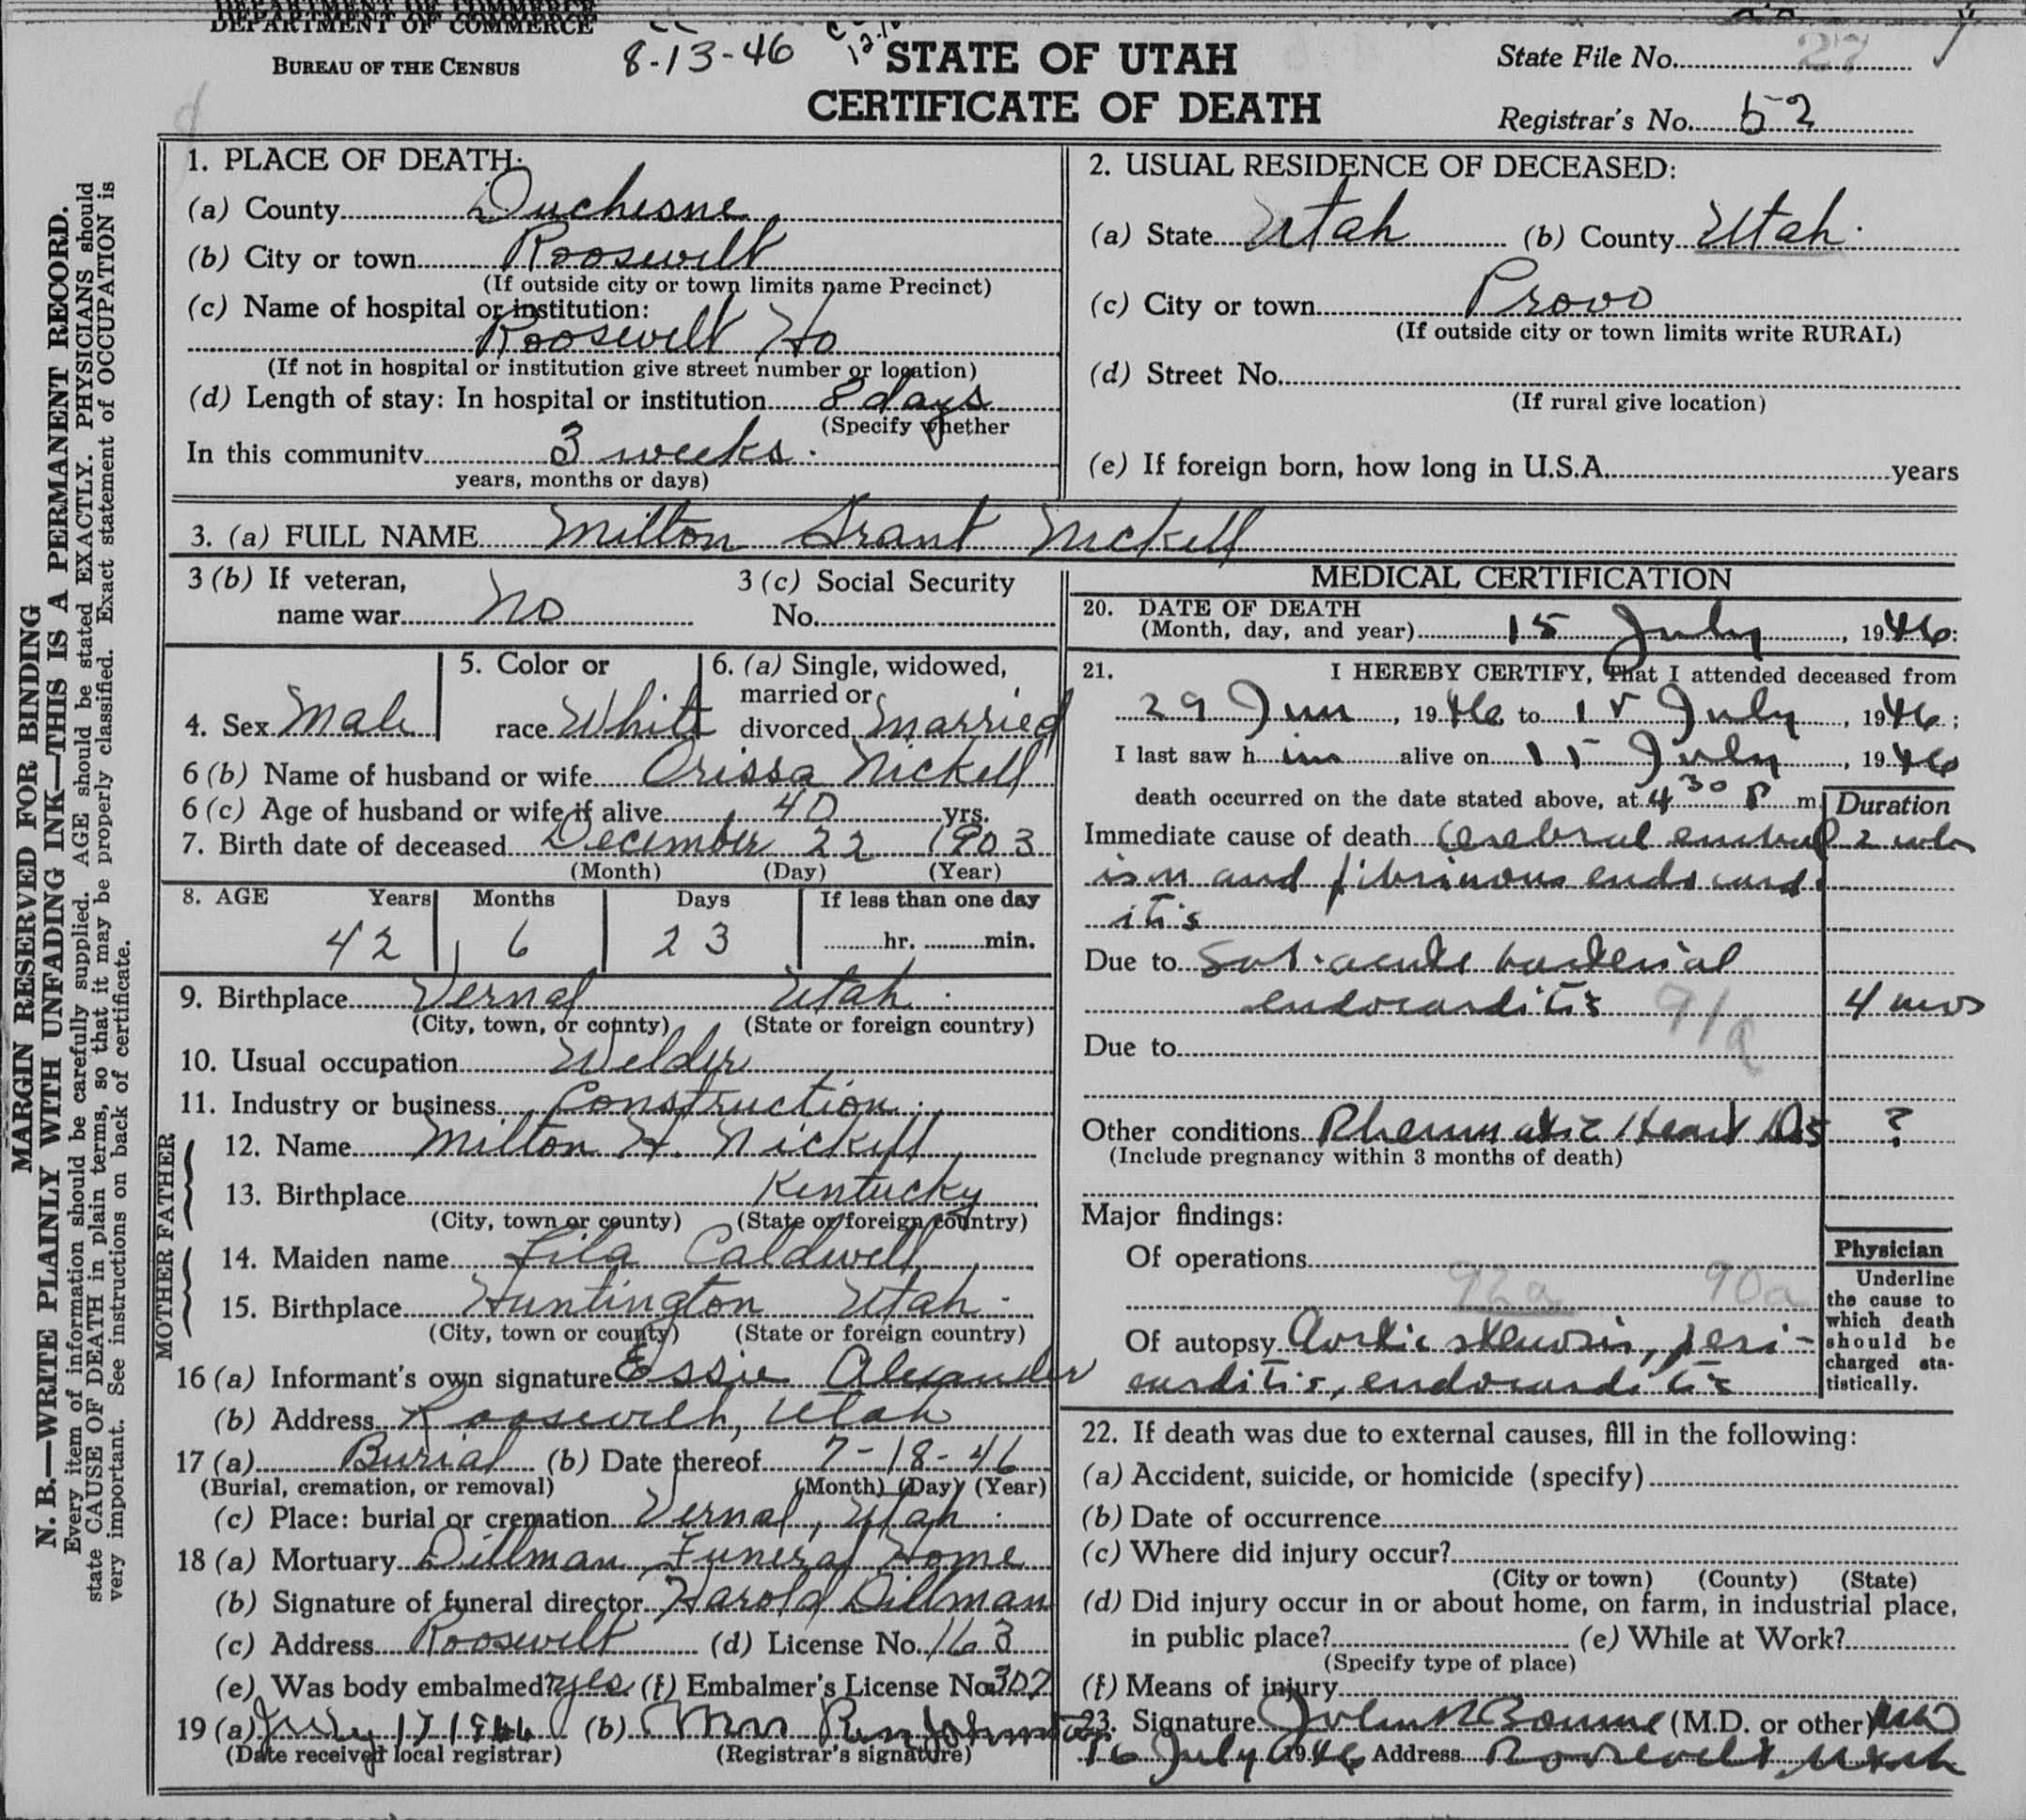 DEPARTMENT OF COMMERCE
BUREAU OF THE CENSUS
8-13-46
STATE OF UTAH
CERTIFICATE OF DEATH
State File No. 27
Registrar's No. 52
MARGIN RESERVED FOR BINDING
N. B.—WRITE PLAINLY WITH UNFADING INK—THIS IS A PERMANENT RECORD.
Every item of information should be carefully supplied. AGE should be stated EXACTLY. PHYSICIANS should
state CAUSE OF DEATH in plain terms, so that it may be properly classified. Exact statement of OCCUPATION is
very important. See instructions on back of certificate.
1. PLACE OF DEATH:
(a) County Duchesne
(b) City or town Roosevelt
(If outside city or town limits name Precinct)
(c) Name of hospital or institution:
Roosevelt Ho
(If not in hospital or institution give street number or location)
(d) Length of stay: In hospital or institution 8 days
(Specify whether
In this community 3 weeks
years, months or days)
2. USUAL RESIDENCE OF DECEASED:
(a) State Utah (b) County Utah
(c) City or town Provo
(If outside city or town limits write RURAL)
(d) Street No.
(If rural give location)
(e) If foreign born, how long in U.S.A. years
3. (a) FULL NAME Milton Grant Nickell
3 (b) If veteran,
name war No
3 (c) Social Security
No.
4. Sex Male
5. Color or
race White
6. (a) Single, widowed,
married or
divorced Married
6 (b) Name of husband or wife Orissa Nickell
6 (c) Age of husband or wife if alive 40 yrs.
7. Birth date of deceased December 22 1903
(Month) (Day) (Year)
8. AGE Years Months Days If less than one day
42 6 23 hr. min.
9. Birthplace Vernal Utah
(City, town, or county) (State or foreign country)
10. Usual occupation Welder
11. Industry or business Construction
FATHER
12. Name Milton H. Nickell
13. Birthplace Kentucky
(City, town or county) (State or foreign country)
MOTHER
14. Maiden name Lila Caldwell
15. Birthplace Huntington Utah
(City, town or county) (State or foreign country)
16 (a) Informant's own signature Essie Alexander
(b) Address Roosevelt, Utah
17 (a) Burial (b) Date thereof 7-18-46
(Burial, cremation, or removal) (Month) (Day) (Year)
(c) Place: burial or cremation Vernal, Utah
18 (a) Mortuary Dillman Funeral Home
(b) Signature of funeral director Harold Dillman
(c) Address Roosevelt (d) License No. 163
(e) Was body embalmed? yes (f) Embalmer's License No. 307
19 (a) July 17 1946 (b) Mrs
(Date received local registrar) (Registrar's signature)
MEDICAL CERTIFICATION
20. DATE OF DEATH
(Month, day, and year) 15 July, 1946;
21. I HEREBY CERTIFY, That I attended deceased from
29 Jun, 1946 to 15 July, 1946;
I last saw him alive on 15 July, 1946
death occurred on the date stated above, at 4 30 P m.
Duration
Immediate cause of death Cerebral embol 2 wks
ism and fibrinous endocard
itis
Due to Sub-acute bacterial
endocarditis 91a 4 mos
Due to
Other conditions Rheumatic Heart Dis ?
(Include pregnancy within 3 months of death)
Major findings:
Of operations
92a 90a
Of autopsy Aortic stenosis, peri-
carditis, endocarditis
Physician
Underline
the cause to
which death
should be
charged sta-
tistically.
22. If death was due to external causes, fill in the following:
(a) Accident, suicide, or homicide (specify)
(b) Date of occurrence
(c) Where did injury occur?
(City or town) (County) (State)
(d) Did injury occur in or about home, on farm, in industrial place,
in public place? (e) While at Work?
(Specify type of place)
(f) Means of injury
23. Signature (M.D. or other) MD
16 July 1946 Address Roosevelt Utah